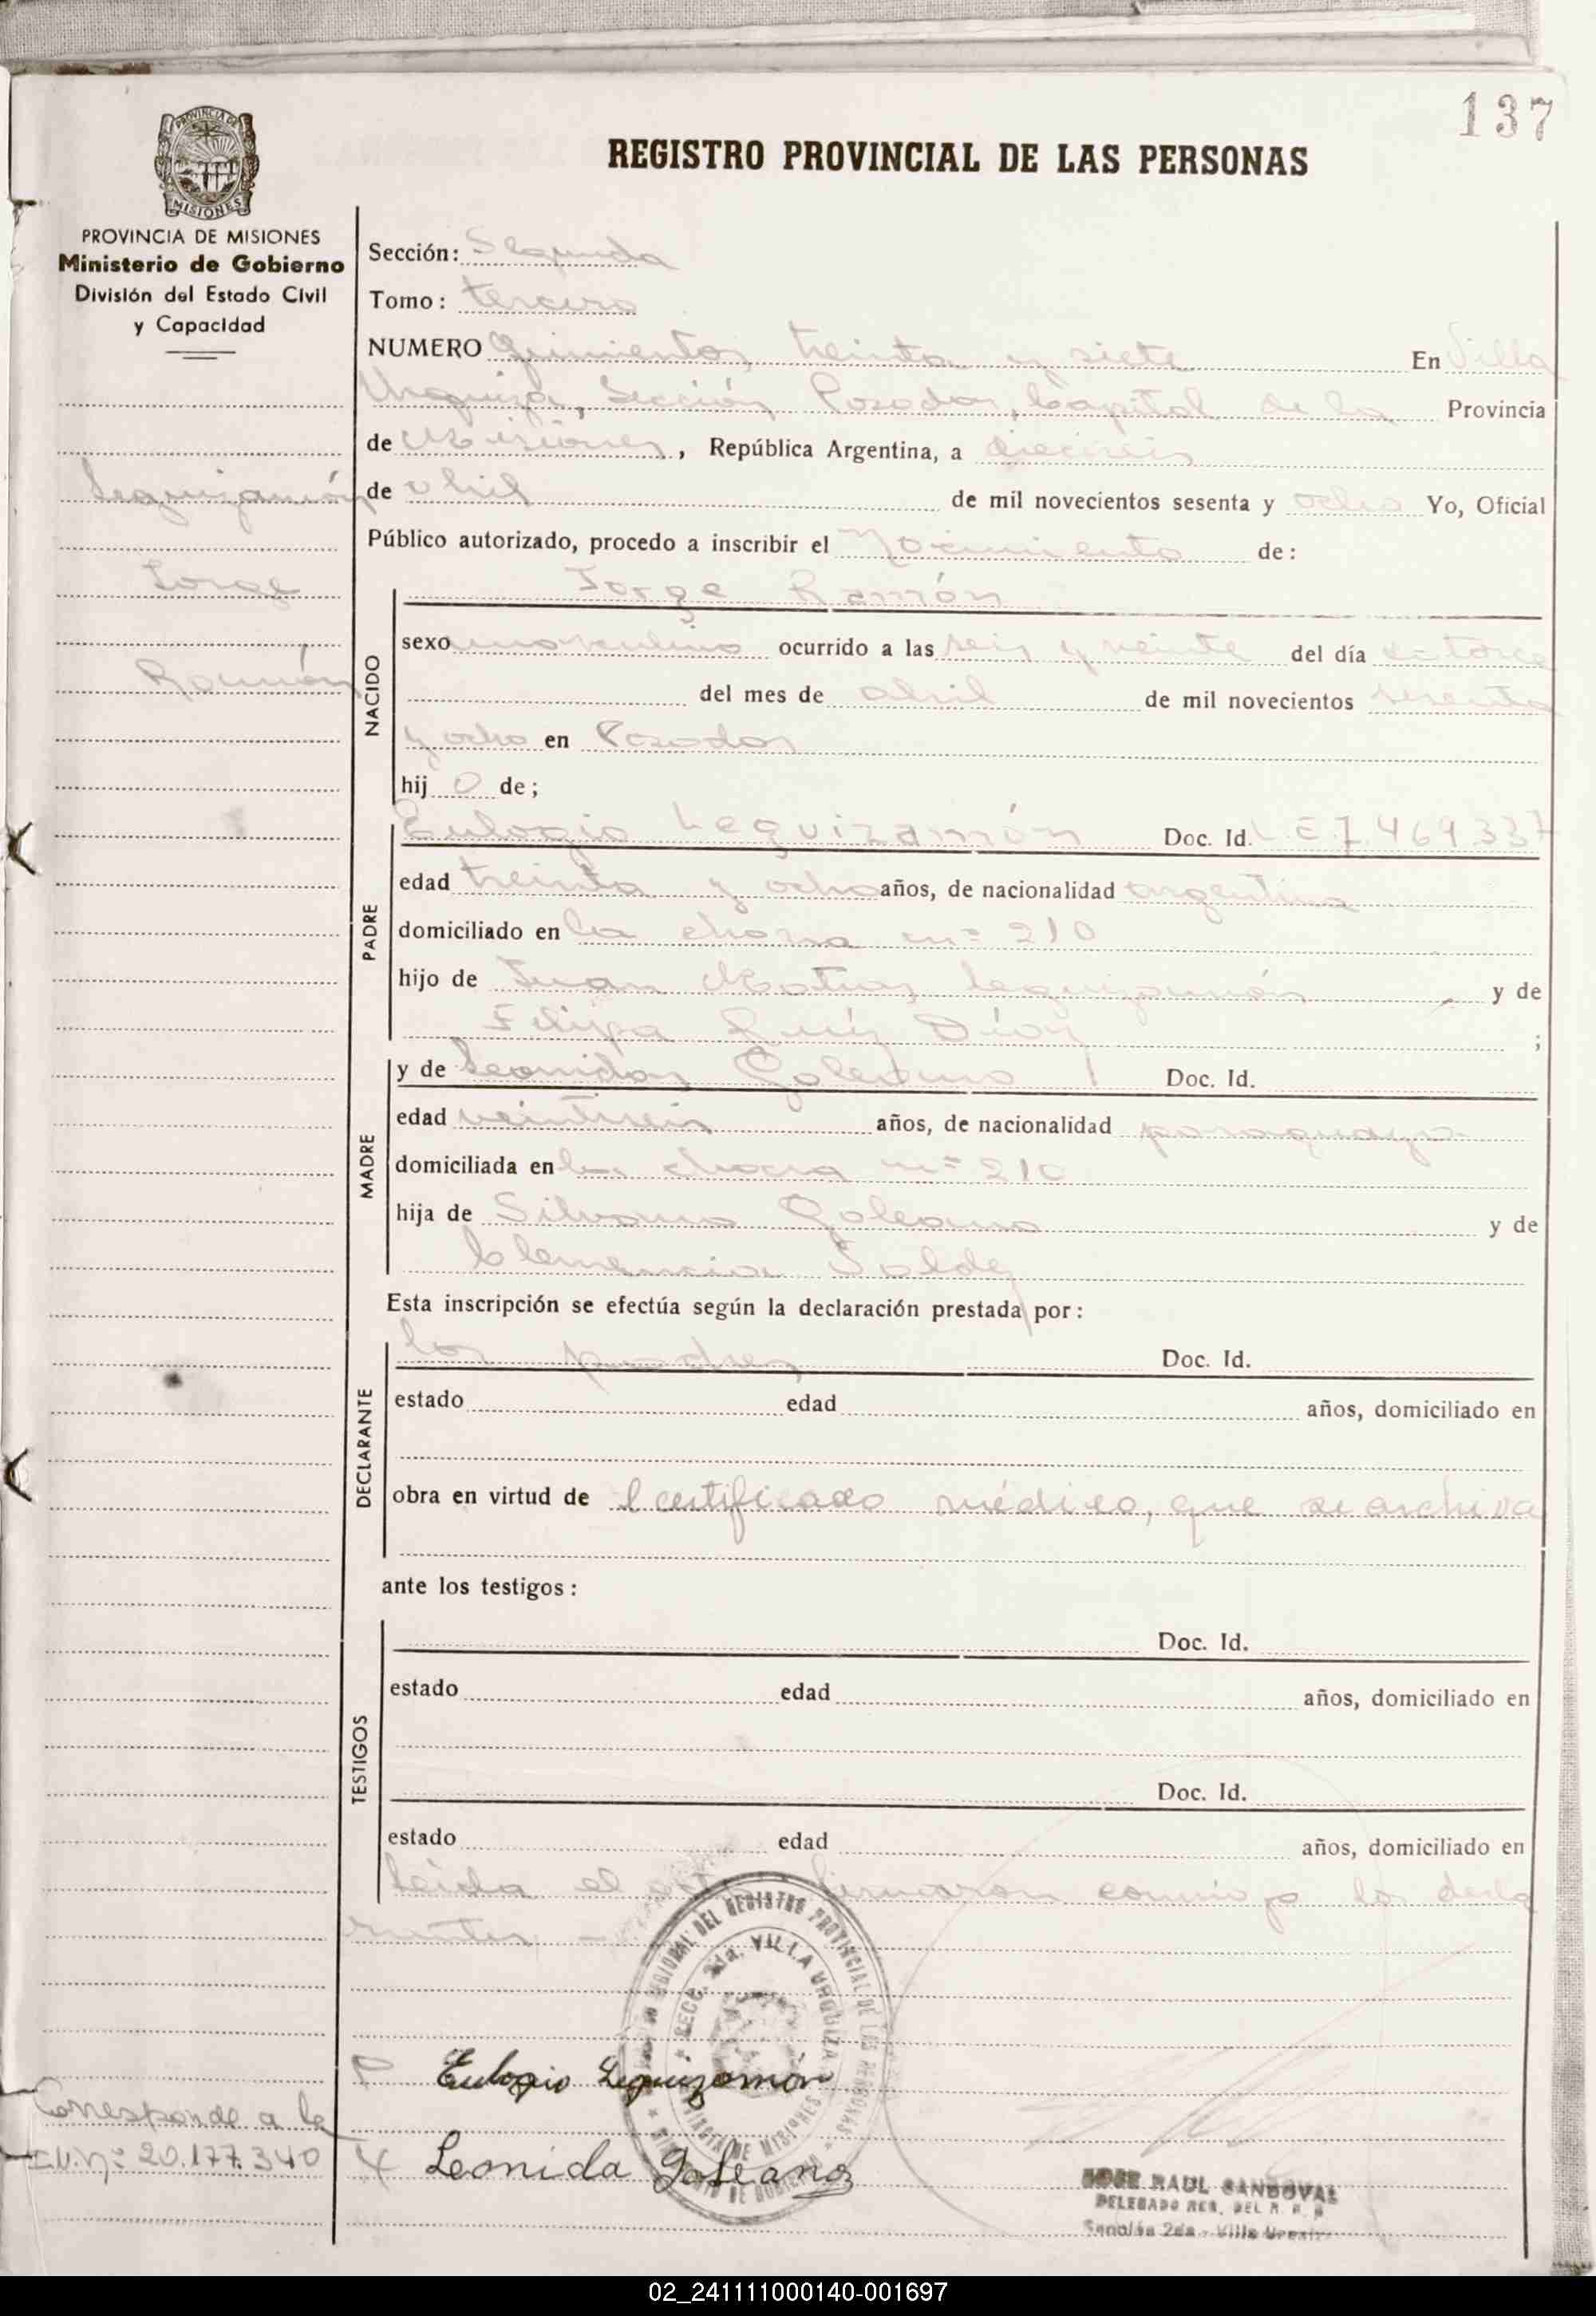 137
REGISTRO PROVINCIAL DE LAS PERSONAS
PROVINCIA DE
MISIONES
PROVINCIA DE MISIONES
Ministerio de Gobierno
División del Estado Civil
y Capacidad
Leguizamón
Jorge
Ramón
Sección: Segunda
Tomo: tercero
NUMERO Quinientos treinta y siete En Villa
Urquiza, Sección Posadas, Capital de la Provincia
de Misiones, República Argentina, a dieciseis
de abril de mil novecientos sesenta y ocho Yo, Oficial
Público autorizado, procedo a inscribir el Nacimiento de:
NACIDO
Jorge Ramón
sexo masculino ocurrido a las seis y veinte del día catorce
del mes de abril de mil novecientos sesenta
y ocho en Posadas
hij o de;
PADRE
Eulogio Leguizamón Doc. Id. L.E 7.469.337
edad treinta y ocho años, de nacionalidad argentina
domiciliado en la chacra nº 210
hijo de Juan Matias Leguizamón y de
Filipa Díaz ;
MADRE
y de Leonidas Galeano Doc. Id.
edad veintiseis años, de nacionalidad paraguaya
domiciliada en la chacra nº 210
hija de Silvano Galeano y de
Clemencia
Esta inscripción se efectúa según la declaración prestada por:
DECLARANTE
los padres Doc. Id.
estado edad años, domiciliado en
obra en virtud de l certificado médico, que se archiva
ante los testigos:
TESTIGOS
Doc. Id.
estado edad años, domiciliado en
Doc. Id.
estado edad años, domiciliado en
Leida el acta firmaron conmigo los decla
rantes -
REGIONAL DEL REGISTRO PROVINCIAL DE LAS PERSONAS
SECC. 2da. VILLA URQUIZA
Eulogio Leguizamón
Leonida Galeano
Corresponde a la
I.N.Nº: 20.177.340
JOSE RAUL SANDOVAL
DELEGADO REG. DEL R. P. P
Sección 2da - Villa Urquiza
02_241111000140-001697